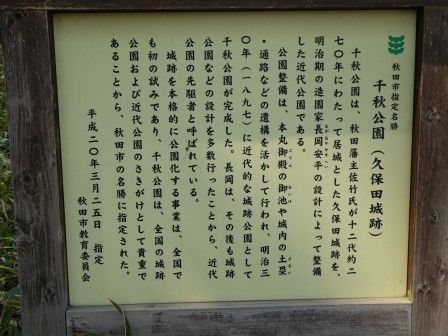 秋田市指定名勝
千秋公園（久保田城跡）
千秋公園は、秋田藩主佐竹氏が十二代約二
七〇年にわたって居城とした久保田城跡を、
明治期の造園家長岡安平の設計によって整備
した近代公園である。
公園整備は、本丸御殿の御池や城内の土塁
・通路などの遺構を活かして行われ、明治三
〇年（一八九七）に近代的な城跡公園として
千秋公園が完成した。長岡は、その後も城跡
公園などの設計を多数行ったことから、近代
公園の先駆者と呼ばれている。
城跡を本格的に公園化する事業は、全国で
も初の試みであり、千秋公園は、全国の城跡
公園および近代公園のさきがけとして貴重で
あることから、秋田市の名勝に指定された。
平成二〇年三月二五日　指定
秋田市教育委員会